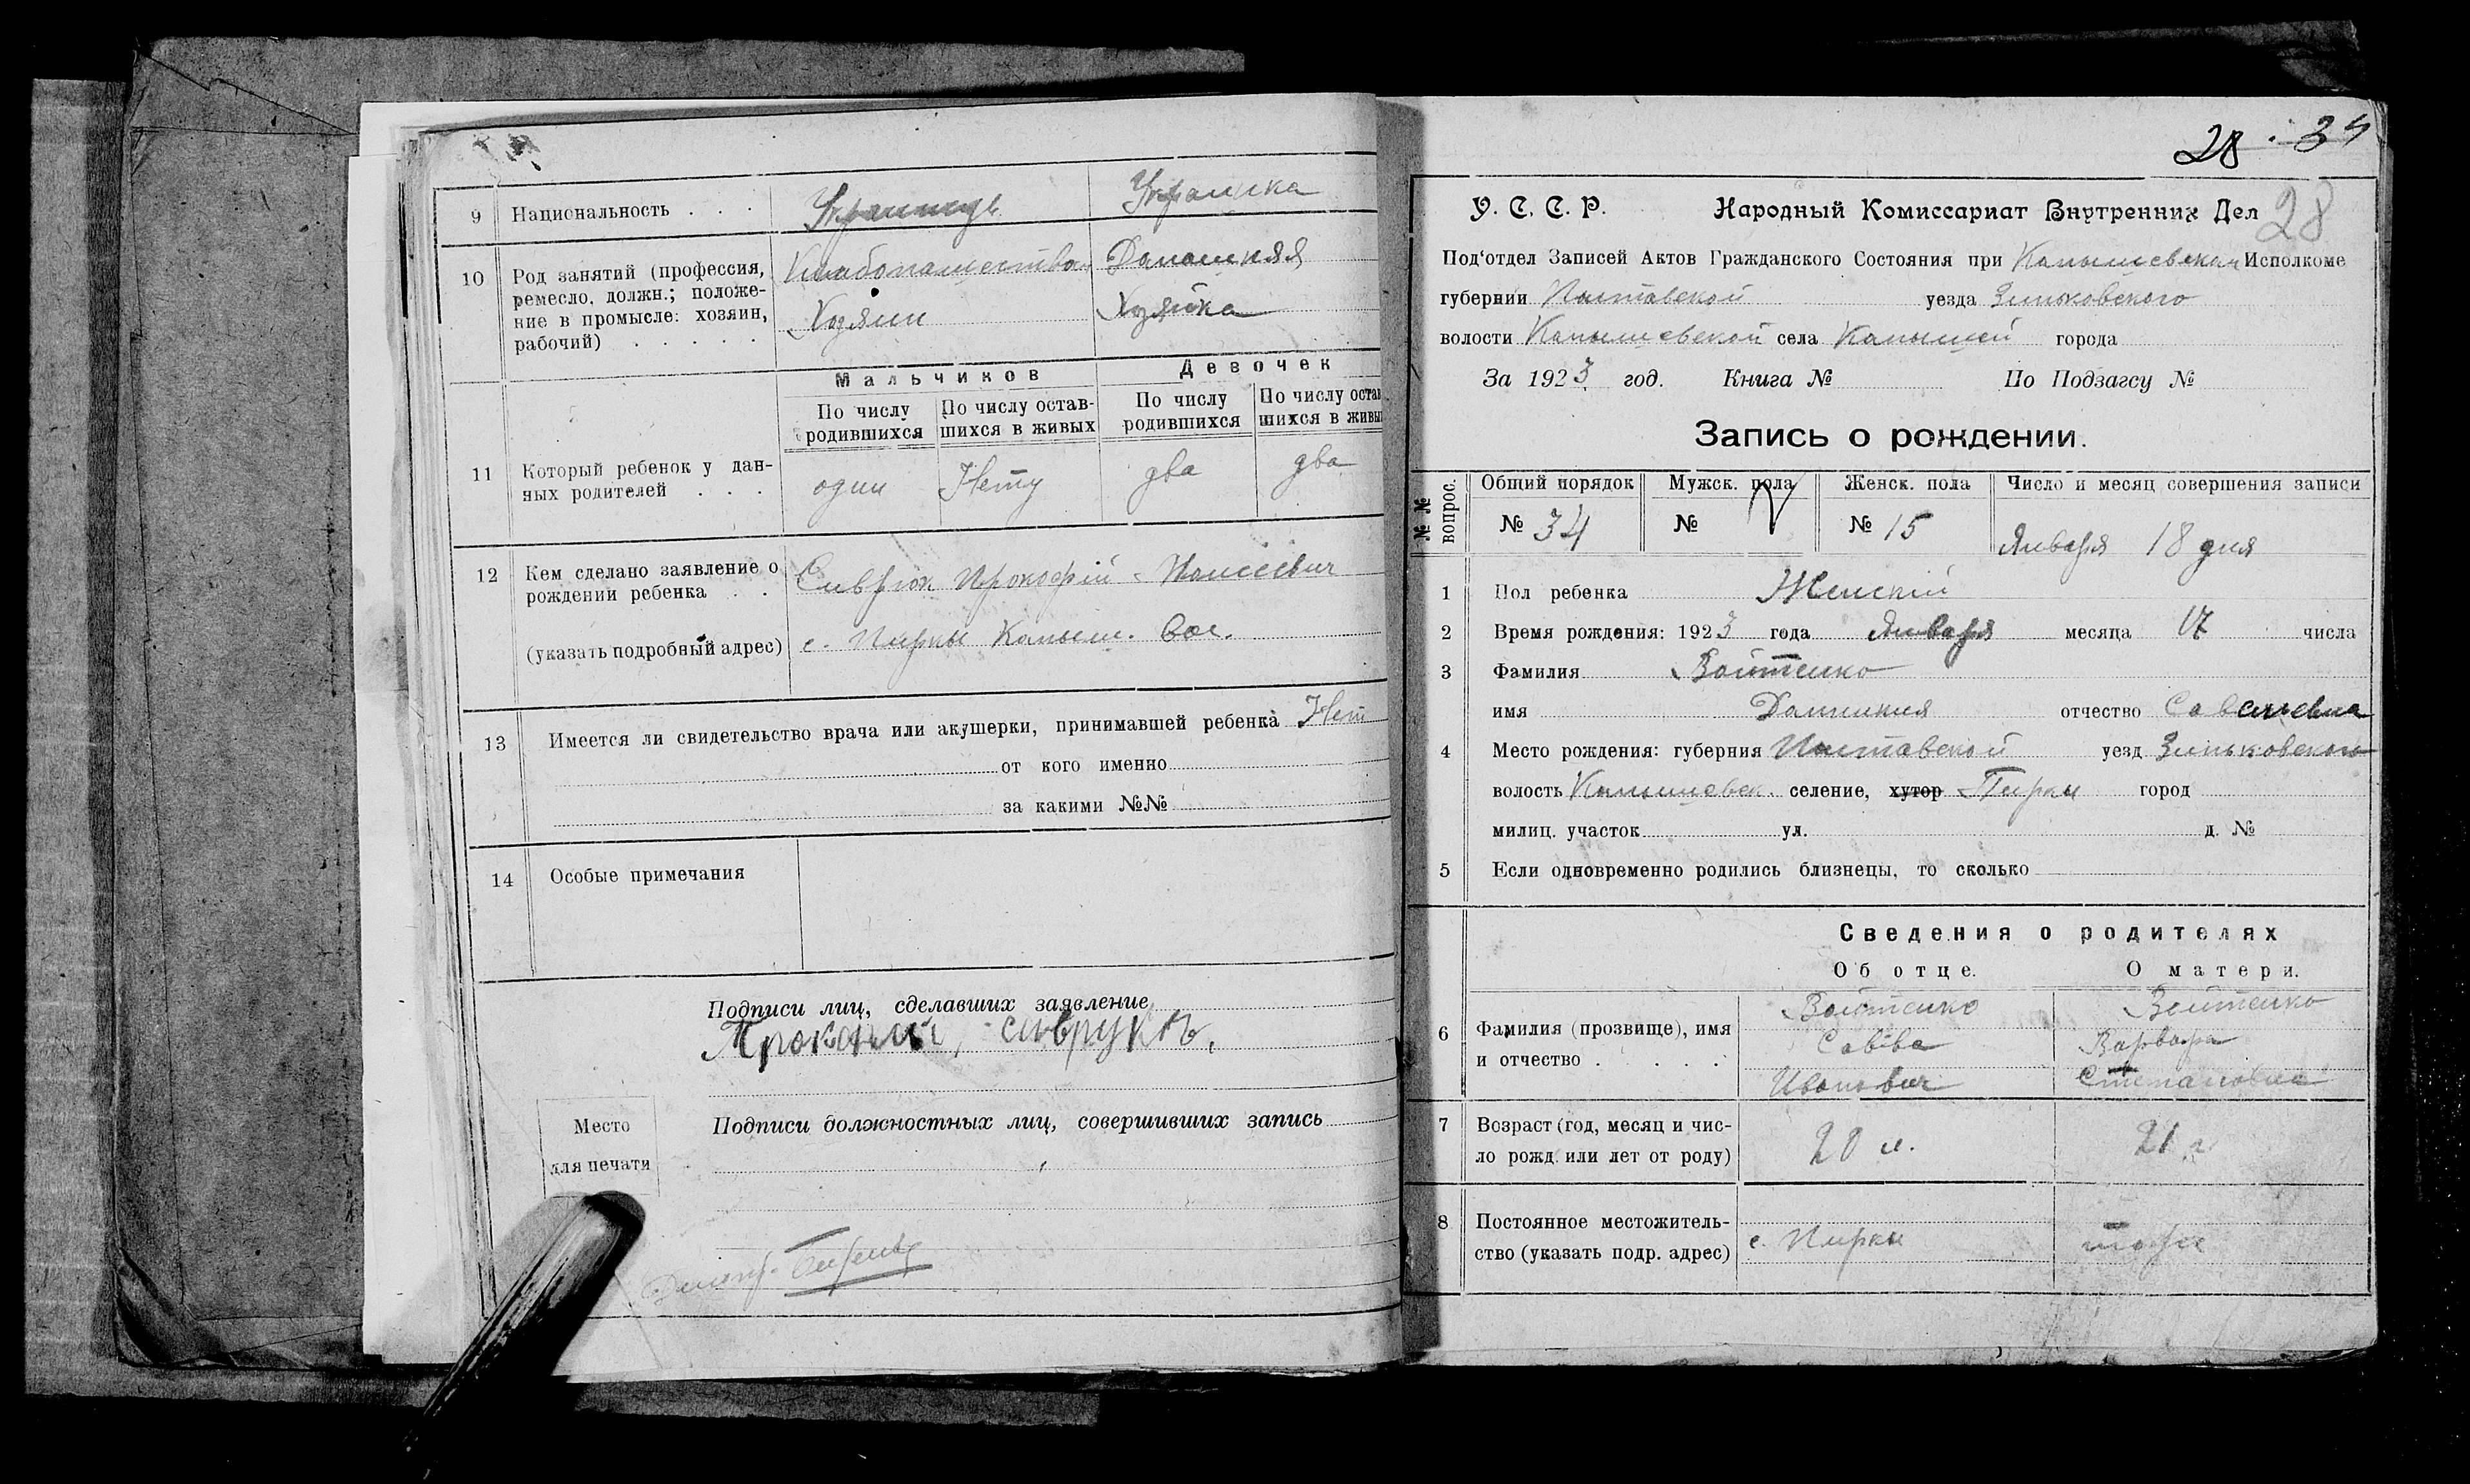 9 Национальность . . . Украинець Украинка
10 Род занятий (профессия, Хлебопашество Домашняя
ремесло, должн.; положе-
ние в промысле: хозяин, Хозяин Хозяйка
рабочий) . . . . .
Мальчиков Девочек
По числу По числу остав- По числу По числу остав
родившихся шихся в живых родившихся шихся в живы
11 Который ребенок у дан- один Нету два два
ных родителей . . .
12 Кем сделано заявление о Сиврюк Прокофій Моисеевич
рождении ребенка . .
(указать подробный адрес) с. Пирки Камыш. Вол.
13 Имеется ли свидетельство врача или акушерки, принимавшей ребенка Нет
от кого именно
за какими №№
14 Особые примечания
Подписи лиц, сделавших заявление
сиврукъ.
Место Подписи должностных лиц, совершивших запись
для печати
28 34
У. С. С. Р. Народный Комиссариат Внутренних Дел 28
Под‘отдел Записей Актов Гражданского Состояния при Исполкоме
губернии Полтавской уезда Зиньковского
волости Камышевской села Камышей города
За 1923 год. Книга № По Подзагсу №
Запись о рождении.
№№ вопрос. Общий порядок Мужск. пола Женск. пола Число и месяц совершения записи
№ 34 № № 15 Января 18 дня
1 Пол ребенка Женскій
2 Время рождения: 1923 года Января месяца 17 числа
3 Фамилия Войтенко
имя Домникия отчество Савичевна
4 Место рождения: губерния Полтавской уезд Зиньковского
волость Камышевск. селение, хутор Пирки город
милиц. участок ул. д. №
5 Если одновременно родились близнецы, то сколько
Сведения о родителях
Об отце. О матери.
Войтенко Войтенко
6 Фамилия (прозвище), имя Савва Варвара
и отчество . . . . Иванович Степановна
7 Возраст (год, месяц и чис- 20 л. 21 г
ло рожд. или лет от роду)
8 Постоянное местожитель-
ство (указать подр. адрес) с. Пирки тоже